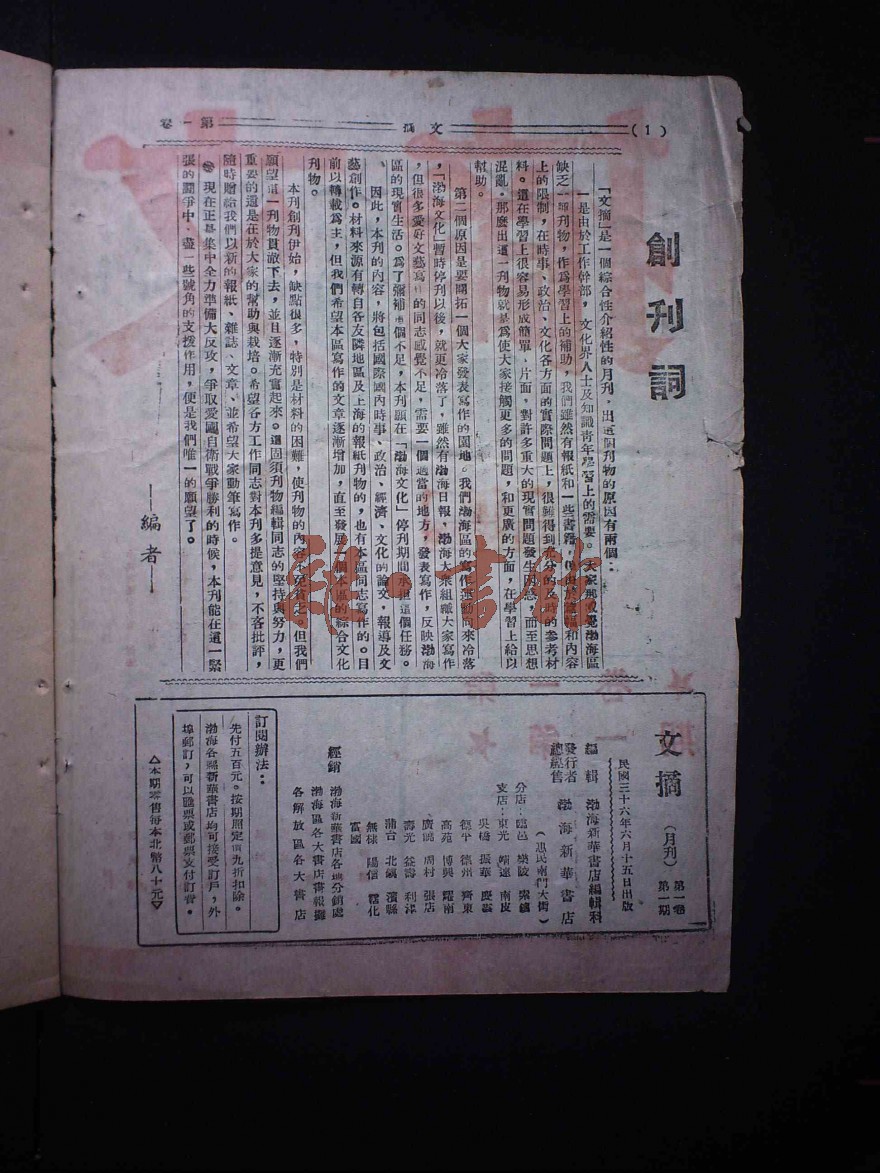 (1)
文摘
第一卷
創刊詞
「文摘」是一個綜合性介紹性的月刊,出這個刊物的原因有兩個:
一是由於工作幹部,文化界人士及知識青年學習上的需要。大家都感覺渤海區
缺乏一部刊物,作爲學習上的補助,我們雖然有報紙和一些書籍,但由於篇幅和內容
上的限制,在時事、政治、文化各方面的實際問題上,很難得到充分的及時的參考材
料。這在學習上很容易形成簡單、片面,對許多重大的現實問題發生困惑,而至思想
混亂。那麽出這一刊物就是爲使大家接觸更多的問題,和更廣的方面,在學習上給以
幫助。
第二個原因是要開拓一個大家發表寫作的園地。我們渤海區的寫作運動向來冷落
,「渤海文化」暫時停刊以後,就更冷落了,雖然有渤海日報、渤海大衆組織大家寫作
,但很多愛好文藝寫作的同志感覺不足,需要一個適當的地方,發表寫作,反映渤海
區的現實生活。爲了彌補這個不足,本刊願在「渤海文化」停刊期間承担這個任務。
因此,本刊的內容,將包括國際國內時事、政治、經濟、文化的論文,報導及文
藝創作。材料來源有轉自各友隣地區及上海的報紙刊物的,也有本區同志寫作的。目
前以轉載爲主,但我們希望本區寫作的文章逐漸增加,直至發展一個本區的綜合文化
刊物。
本刊創刊伊始,缺點很多,特別是材料的困難,使刊物的內容不免貧乏。但我們
願望這一刊物貫澈下去,並且逐漸充實起來。這固須刊物編輯同志的堅持與努力,更
重要的還是在於大家的幫助與栽培。希望各方工作同志對本刊多提意見,不客批評,
隨時贈給我們以新的報紙、雜誌、文章、並希望大家動筆寫作。
現在正是集中全力準備大反攻,爭取愛國自衛戰爭勝利的時候,本刊能在這一緊
張的鬪爭中,盡一些號角的支援作用,便是我們唯一的願望了。
——編者——
文摘(月刊)第一卷第一期
民國三十六年六月十五日出版
編輯 渤海新華書店編輯科
發行者 總經售 渤海新華書店
(惠民南門大街)
分店:臨邑 樂陵
支店:東光 靖遠 南皮
吳橋 振華 慶雲
德平 德州 齊東
高苑 博興 耀南
廣饒 周村 張店
壽光 益壽 利津
蒲台 北鎮 濱縣
無棣 陽信 霑化
富國
經銷 渤海新華書店各地分銷處
渤海區各大書店書報攤
各解放區各大書店
訂閱辦法:
先付五百元。按期照定價九折扣除。
渤海各縣新華書店均可接受訂戶,外
埠郵訂,可以匯票或郵票支付訂費。
△本期零售每本北幣八十元▽